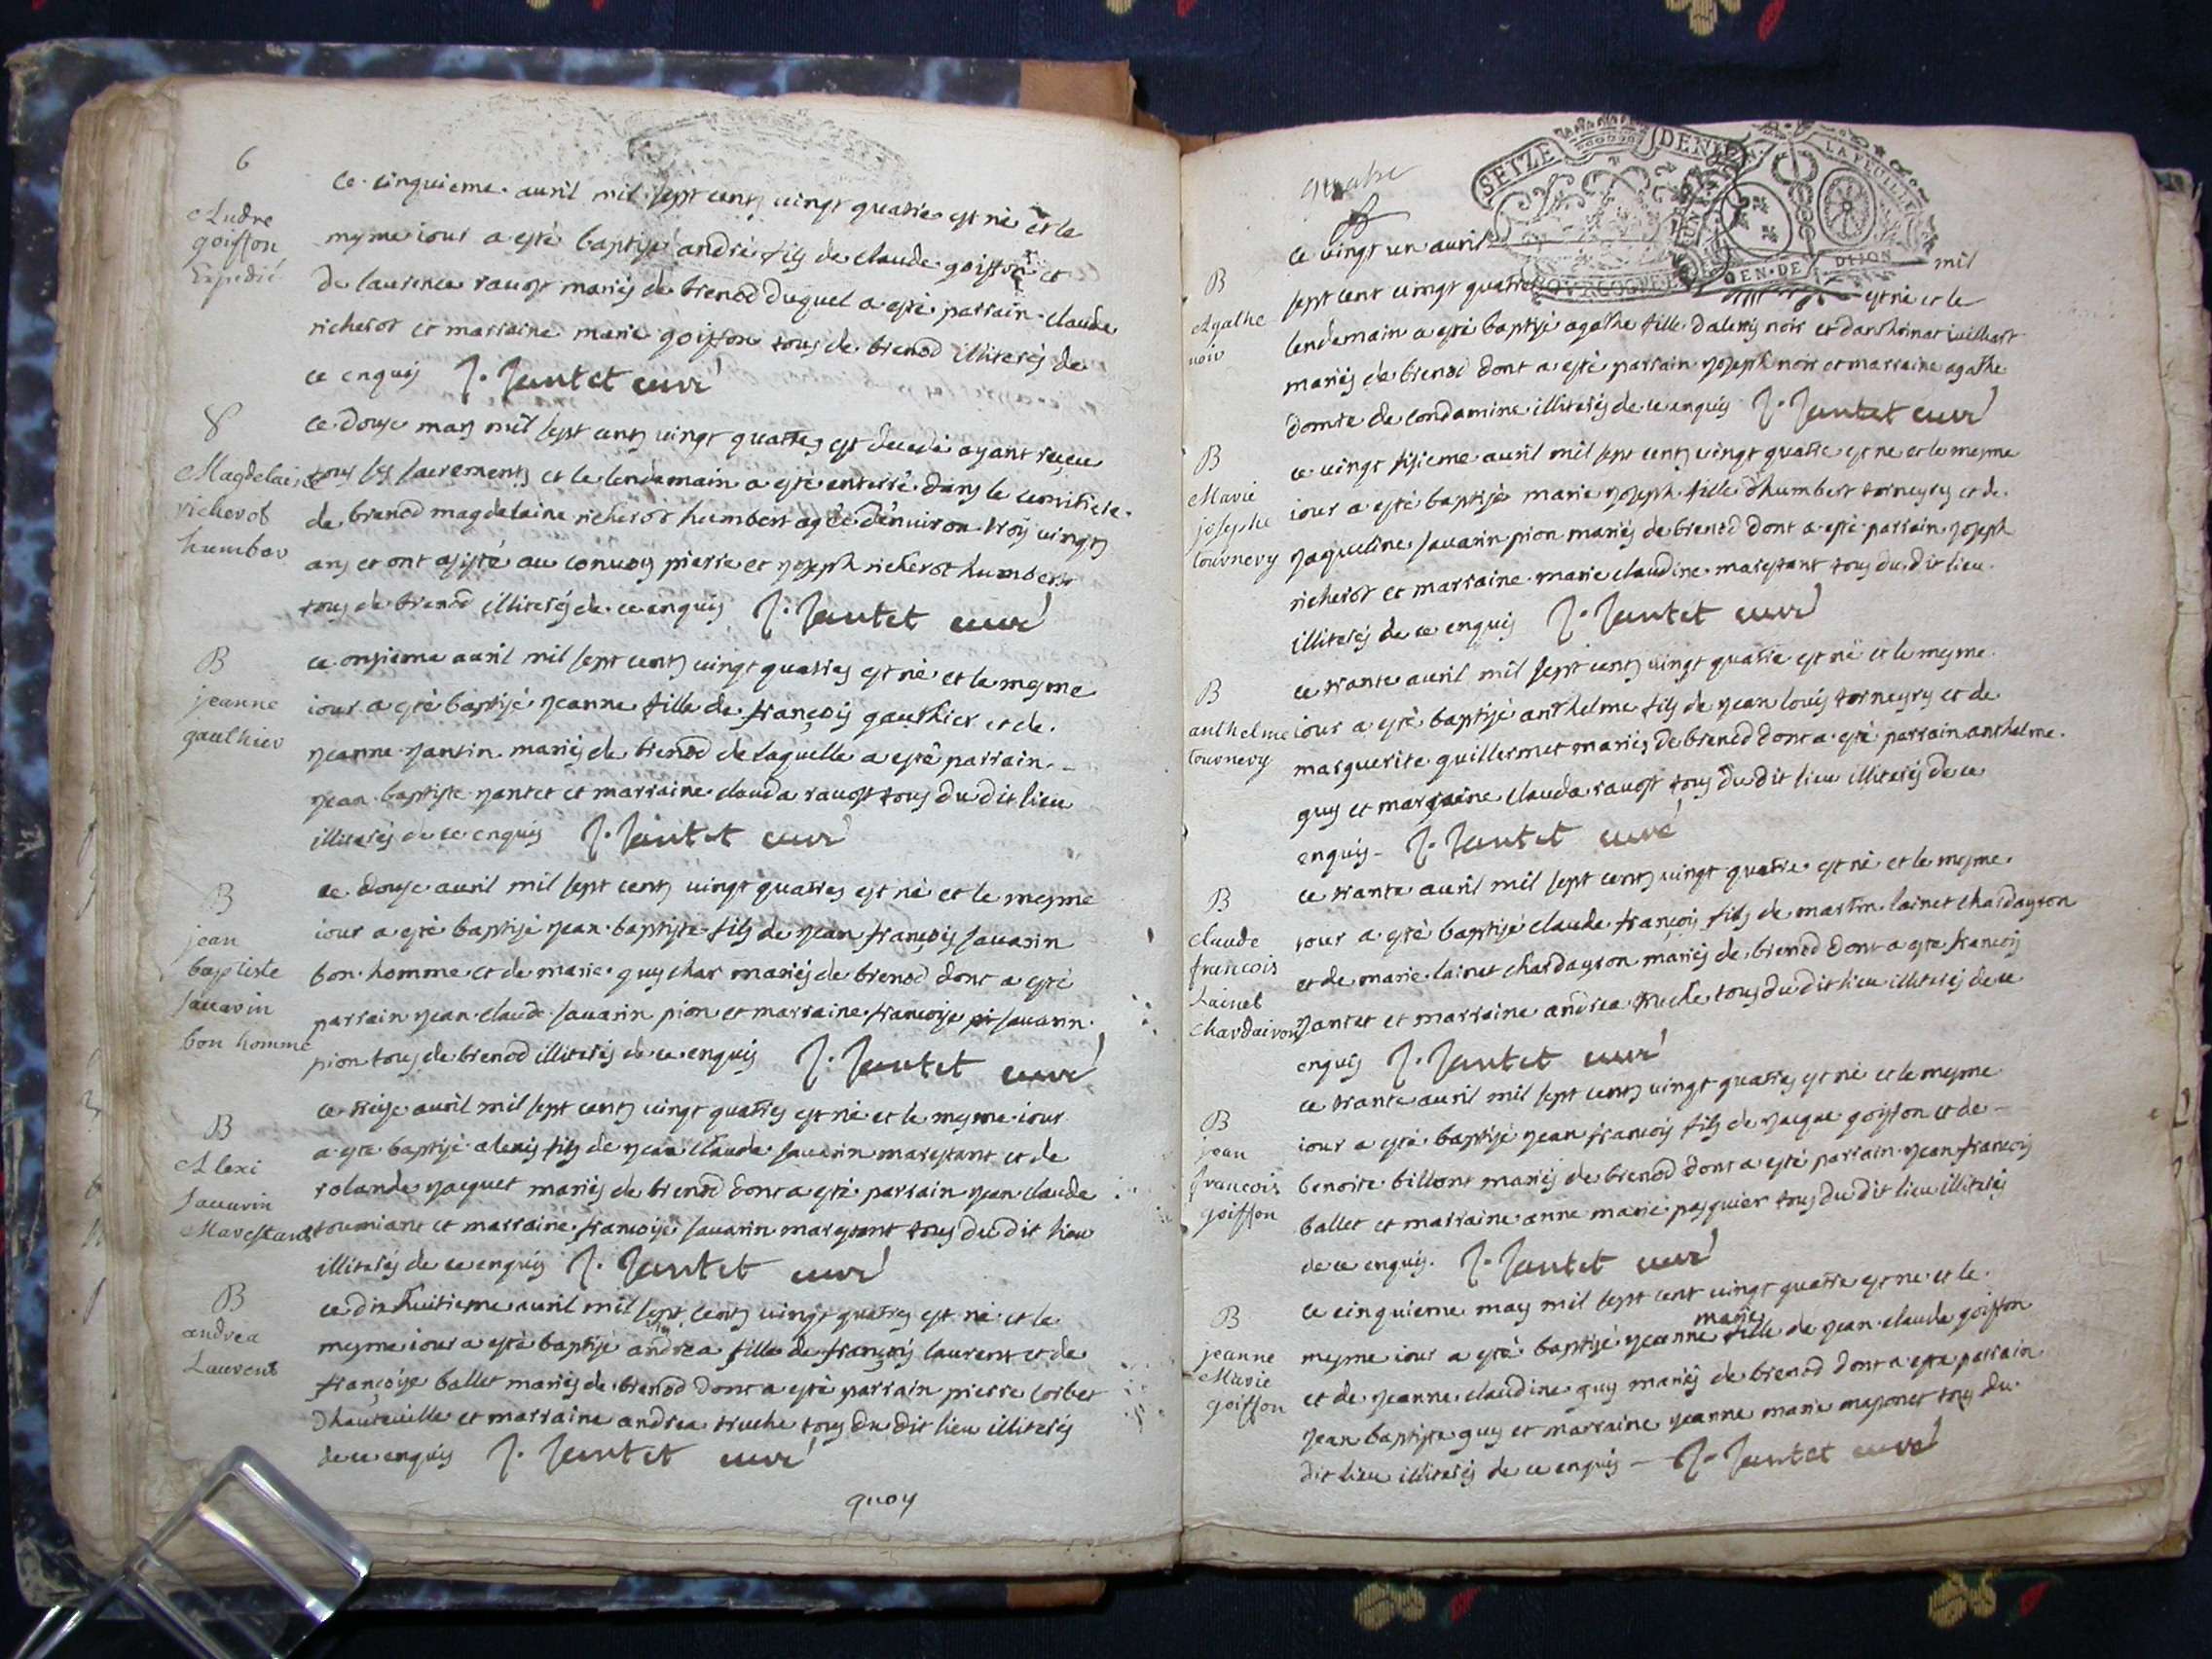 6
Andre
goiffon
Expedié
Ce cinquieme auril mil sept cents vingt quatre est né et le
mesme iour a esté baptisé andré fils de claude goiffon et
de laurence rauost mariés de brenod duquel a esté parrain claude
richerot et marraine marie goiffon tous de brenod illiterés de
ce enquis J. Jantet curé
Magdelaine
richerot
humber
ce douse mars mil sept cents vingt quattres est decedé ayant receu
tous les sacrements et le lendemain a esté enterré dans le cemitiere
de brenod magdelaine richerot humbert agée d'enuiron trois vingts
ans et ont assisté au conuoy pierre et yoseph richerot humbert
tous de brenod illiterés de ce enquis J. Jantet curé
B
jeanne
gauthier
ce onsieme auril mil sept cents vingt quatres est né et le mesme
iour a esté baptisé yeanne fille de françois gauthier et de
yeanne yantin mariés de brenod de laquelle a esté parrain
yean baptiste yantet et marraine clauda rauost tous du dit lieu
illiterés de ce enquis J. Jantet curé
B
jean
baptiste
sauarin
bon homme
ce douse auril mil sept cents vingt quatres est né et le mesme
iour a esté baptisé yean baptiste fils de yean françois sauarin
bon homme et de marie guychar mariés de brenod dont a esté
parrain yean claude sauarin pion et marraine francoise pi sauarin
pion tous de brenod illiterés de ce enquis J. Jantet curé
B
Alexi
sauarin
Marestant
ce treise auril mil sept cents vingt quattres est né et le mesme iour
a esté baptisé alexis fils de yean claude sauarin marestant et de
rolande yacquet mariés de brenod dont a esté parrain yean claude
toumiant et marraine francoise sauarin marestant tous du dit lieu
illiterés de ce enquis J. Jantet curé
B
andrea
Laurent
ce dix huitieme auril mil sept cents vingt quatres est né et le
mesme iour a esté baptisé andrea fille de françois laurent et de
françoise ballet mariés de brenod dont a esté parrain pierre corbet
d'hauteuille et marraine andrea truche tous du dit lieu illiterés
de ce enquis J. Jantet curé
quoy
quatre
SEIZE DEN LA FEUILLE
GEN. DE DIJON
B
Agathe
noir
ce vingt un auril mil
sept cent vingt quatre est né et le
lendemain a esté baptisé agathe fille d'alexis noir et d'anthoinat iuilhart
mariés de brenod dont a esté parrain yoseph noir et marraine agathe
domte de condamine illiterés de ce enquis J. Jantet curé
B
Marie
josephe
tournery
ce vingt sisieme auril mil sept cents vingt quatre est né et le mesme
iour a esté baptisé marie yoseph fille d'humbert torneyry et de
yaqueline sauarin pion mariés de brenod dont a esté parrain yoseph
richerot et marraine marie claudine marestant tous du dit lieu
illiterés de ce enquis J. Jantet curé
B
anthelme
tournery
ce trante auril mil sept cents vingt quatre est né et le mesme
iour a esté baptisé anthelme fils de yean louis torneyry et de
marguerite guillermet mariés de brenod dont a esté parrain anthelme
guy et marraine clauda rauost tous du dit lieu illiterés de ce
enquis J. Jantet curé
B
claude
francois
Lainet
chardairon
ce trante auril mil sept cents vingt quatre est né et le mesme
iour a esté baptisé claude françois fils de martin lainet chardayron
et de marie lainet chardayron mariés de brenod dont a este francois
yantet et marraine andrea truche tous du dit lieu illiterés de ce
enquis J. Jantet curé
B
jean
francois
goiffon
ce trante auril mil sept cents vingt quatres est né et le mesme
iour a esté baptisé yean francois fils de yacque goiffon et de
benoite billiont mariés de brenod dont a esté parrain yean francois
ballet et marraine anne marie pasquier tous du dit lieu illiterés
de ce enquis J. Jantet curé
B
jeanne
Marie
goiffon
ce cinquieme may mil sept cent vingt quatre est né et le
mesme iour a esté baptisé yeanne marie fille de yean claude goiffon
et de yeanne claudine guy mariés de brenod dont a esté parrain
yean baptiste guy et marraine yeanne marie mesonet tous du
dit lieu illiterés de ce enquis J. Jantet curé